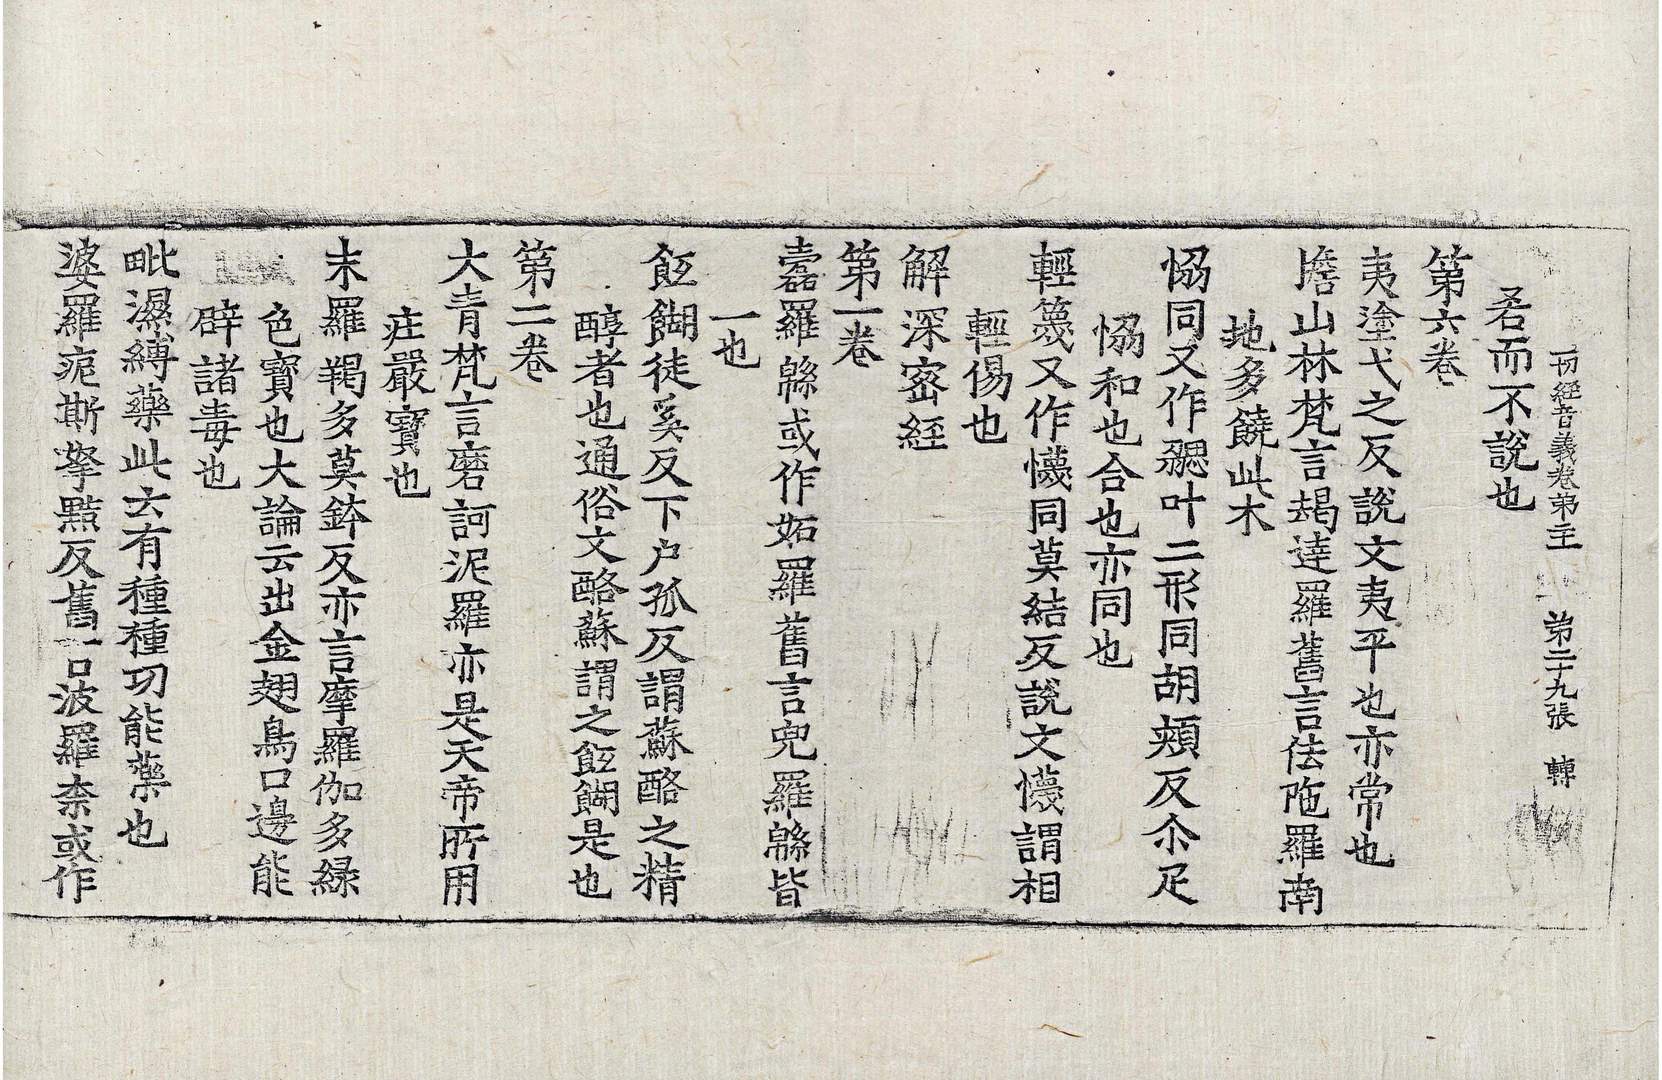 切經音義卷第二十三 第二十九張 轉
君而不說也
第六卷
夷塗弋之反說文夷平也亦常也
擔山林梵言朅達羅舊言佉陁羅南
地多饒此木
恊同又作勰叶二形同胡頰反尒疋
恊和也合也亦同也
輕篾又作懱同莫結反說文懱謂相
輕傷也
解深密經
第一卷
蠹羅緜或作妬羅舊言兜羅緜皆
一也
飥餬徒奚反下户孤反謂蘇酪之精
醇者也通俗文酪蘇謂之飥餬是也
第二卷
大青梵言磨訶泥羅亦是天帝所用
庄嚴寶也
末羅羯多莫鉢反亦言摩羅伽多綠
色寶也大論云出金翅鳥口邊能
辟諸毒也
毗濕縛藥此云有種種功能藥也
婆羅痆斯拏黠反舊言波羅柰或作